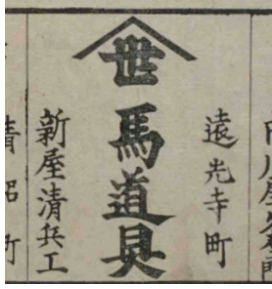 遠光寺町
世
馬道具
新屋清兵工
町